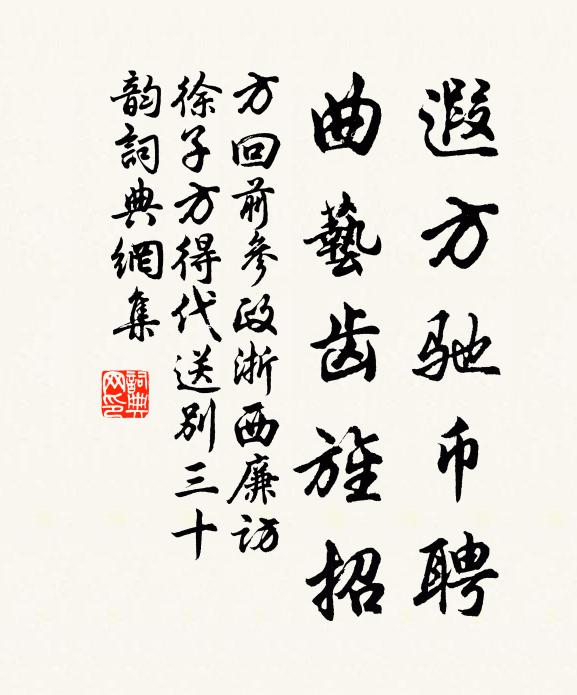 遐方驰币聘
曲藝齿旌招
方回前參政浙西廉訪
徐子方得代送别三十
韵詞典網集
詞典网印